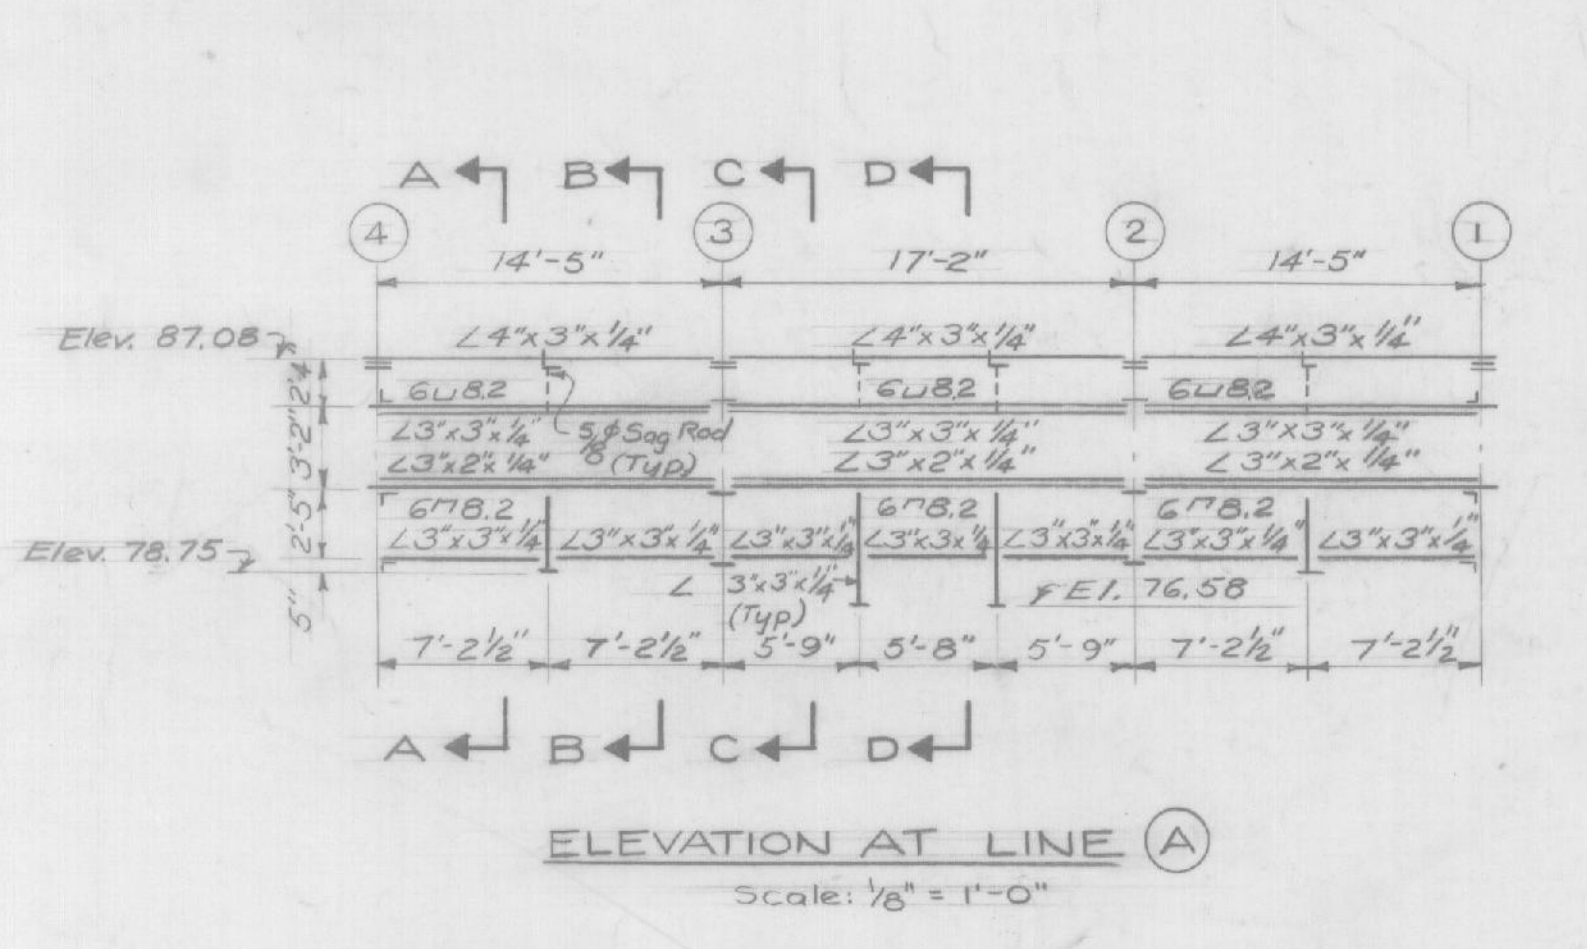 A B C D
4 3 2 1
14'-5" 17'-2" 14'-5"
Elev. 87.08 ∠4"x3"x1/4" ∠4"x3"x1/4" ∠4"x3"x1/4"
2'-4"
6⊔8.2 6⊔8.2 6⊔8.2
3'-2"
∠3"x3"x1/4" 5/8"φ Sag Rod ∠3"x3"x1/4" ∠3"x3"x1/4"
∠3"x2"x1/4" (Typ.) ∠3"x2"x1/4" ∠3"x2"x1/4"
2'-5"
6⊓8.2 6⊓8.2 6⊓8.2
∠3"x3"x1/4" ∠3"x3"x1/4" ∠3"x3"x1/4" ∠3"x3"x1/4" ∠3"x3"x1/4" ∠3"x3"x1/4" ∠3"x3"x1/4"
Elev. 78.75
5"
∠ 3"x3"x1/4" El. 76.58
(Typ.)
7'-2 1/2" 7'-2 1/2" 5'-9" 5'-8" 5'-9" 7'-2 1/2" 7'-2 1/2"
A B C D
ELEVATION AT LINE A
Scale: 1/8" = 1'-0"